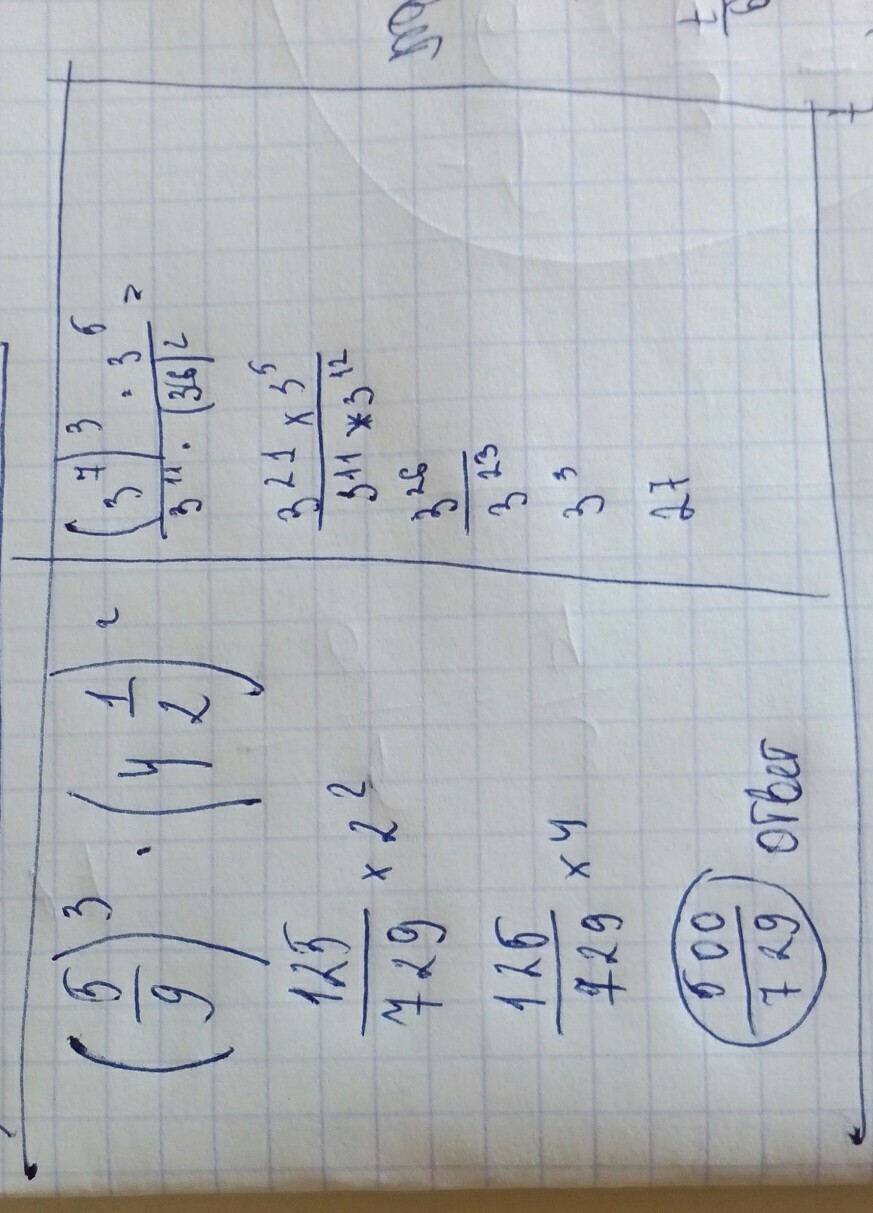 (5/9)³ · (4 1/2)²
125/729 × 2²
125/729 × 4
500/729 ответ
(3⁷)³ · 3⁵ / 3¹¹ · (36)² =
3²¹ × 3⁵ / 3¹¹ × 3¹²
3²⁶ / 3²³
3³
27